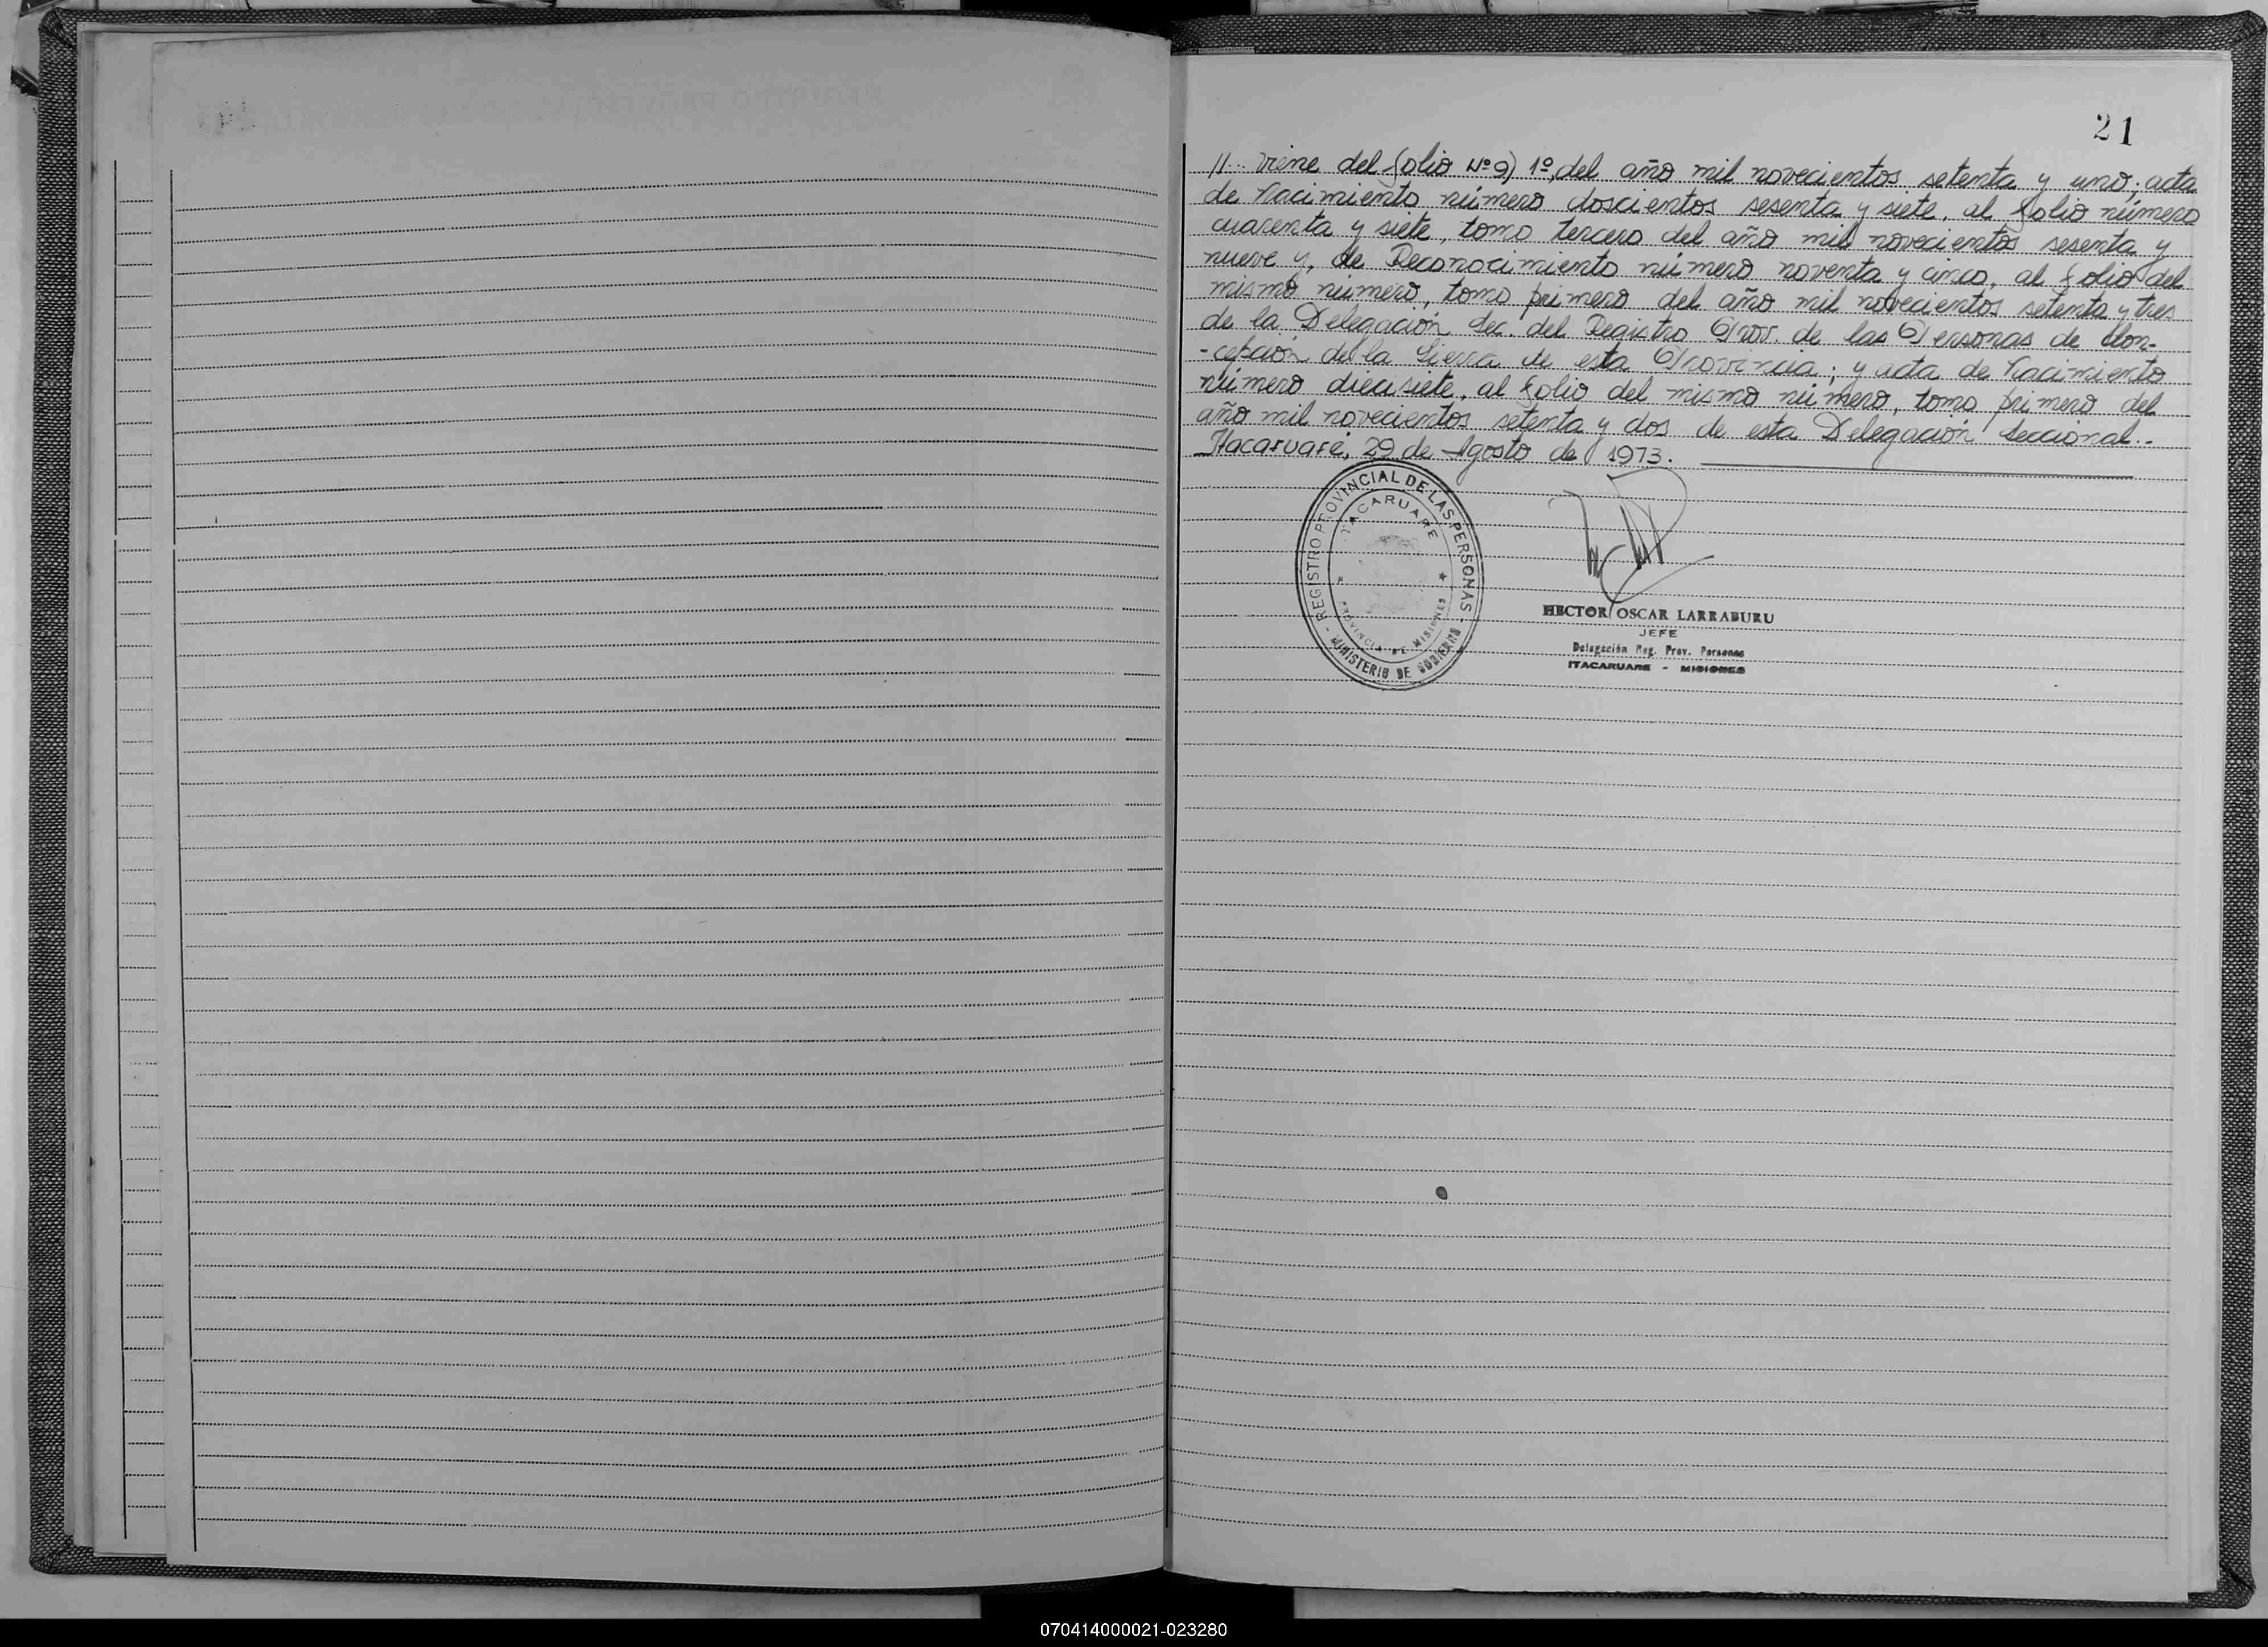 21
//... viene del folio Nº 9) 1º, del año mil novecientos setenta y uno; acta
de Nacimiento número doscientos sesenta y siete, al folio número
cuarenta y siete, tomo tercero del año mil novecientos sesenta y
nueve y, de Reconocimiento número noventa y cinco, al folio del
mismo número, tomo primero del año mil novecientos setenta y tres
de la Delegación Sec. del Registro Prov. de las Personas de Con-
-cepción de la Sierra de esta Provincia; y acta de Nacimiento
número diecisiete, al folio del mismo número, tomo primero del
año mil novecientos setenta y dos de esta Delegación Seccional.-
Itacaruaré, 29 de Agosto de 1973.
- REGISTRO PROVINCIAL DE LAS PERSONAS -
MINISTERIO DE GOBIERNO
ITACARUARE
PROVINCIA DE MISIONES
HECTOR OSCAR LARRABURU
JEFE
Delegación Reg. Prov. Personas
ITACARUARE - MISIONES
070414000021-023280